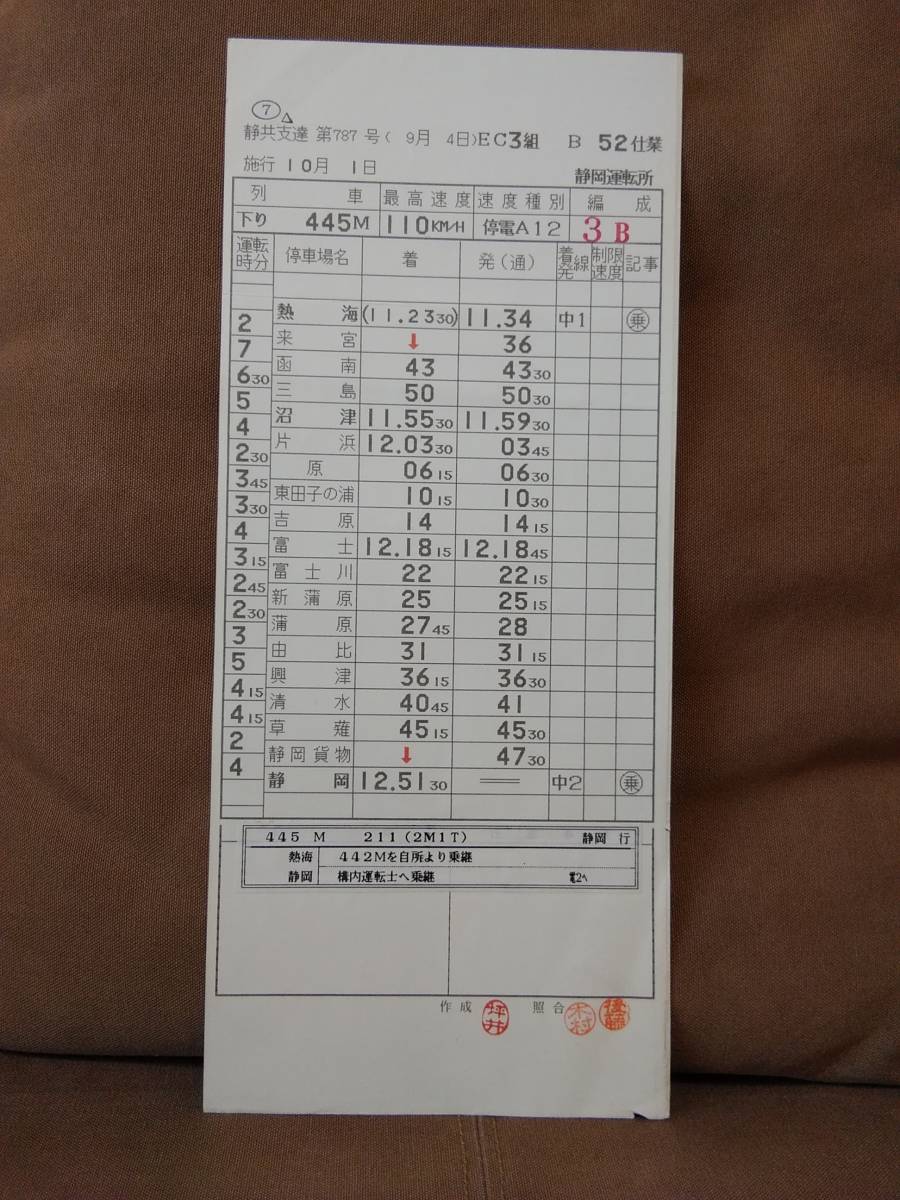 ⑦△
静共支達 第787 号( 9月 4日)EC3組 B 52仕業
施行 10月 1日 静岡運転所
列 車 最高速度 速度種別 編 成
下り 445M 110KM/H 停電A12 3 B
運転時分 停車場名 着 発(通) 着発線 制限速度 記事
熱 海 (11.23 30) 11.34 中1 乗
2
来 宮 ↓ 36
7
函 南 43 43 30
6 30
三 島 50 50 30
5
沼 津 11.55 30 11.59 30
4
片 浜 12.03 30 03 45
2 30
原 06 15 06 30
3 45
東田子の浦 10 15 10 30
3 30
吉 原 14 14 15
4
富 士 12.18 15 12.18 45
3 15
富 士 川 22 22 15
2 45
新 蒲 原 25 25 15
2 30
蒲 原 27 45 28
3
由 比 31 31 15
5
興 津 36 15 36 30
4 15
清 水 40 45 41
4 15
草 薙 45 15 45 30
2
静岡貨物 ↓ 47 30
4
静 岡 12.51 30 ＝ 中2 乗
445 M 211(2M1T) 静岡 行
熱海 442Mを自所より乗継
静岡 構内運転士へ乗継 電2へ
作 成 坪井 照 合 木村 後藤